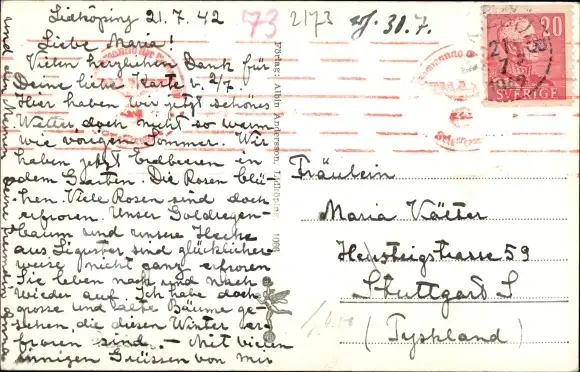 Lidköping 21.7.42
Liebe Maria!
Vielen herzlichen Dank für
Deine liebe Karte v. 2/7.
Hier haben wir jetzt schönes
Wetter, doch nicht so warm
wie vorigen Sommer. Wir
haben jetzt Erdbeeren in
dem Garten. Die Rosen blü-
hen. Viele Rosen sind doch
erfroren. Unser Goldregen-
baum und unsere Hecke
aus Liguster sind glücklicher
weise nicht ganz erfroren
Sie leben nach und nach
wieder auf. Ich habe doch
grosse und alte Bäume ge-
sehen, die diesen Winter er-
froren sind. – Mit vielen
innigen Grüssen von mir
und den Meinen Deine Freundin Anna
73
2173
31.7.
Förlag: Albin Andersson, Lidköping
20
SVERIGE
Fräulein
Maria
Heusteigstrasse 59
Stuttgart S
(Tyskland)